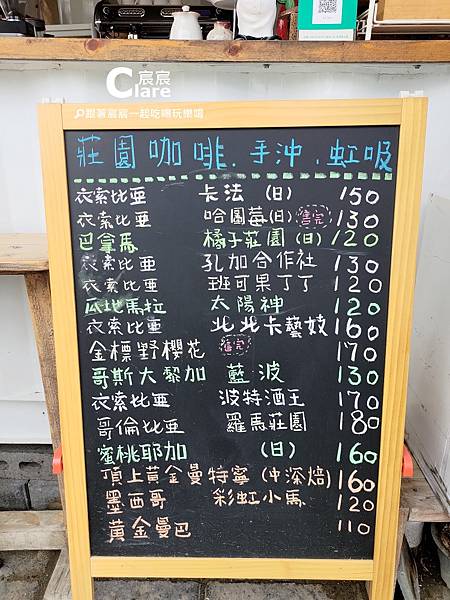 Clare
宸宸
跟著宸宸一起吃喝玩樂唷
莊園咖啡.手沖.虹吸
衣索比亞 卡法 (日) 150
衣索比亞 哈園莓(日) 售完 130
巴拿馬 橘子莊園(日) 120
衣索比亞 孔加合作社 130
衣索比亞 班可果丁丁 120
瓜地馬拉 太陽神 120
衣索比亞 北北卡藝妓 160
金標野櫻花 售完 170
哥斯大黎加 藍波 130
衣索比亞 波特酒王 170
哥倫比亞 羅馬莊園 180
蜜桃耶加 (日) 160
頂上黃金曼特寧(中深焙) 160
墨西哥 彩虹小馬 120
黃金曼巴 110